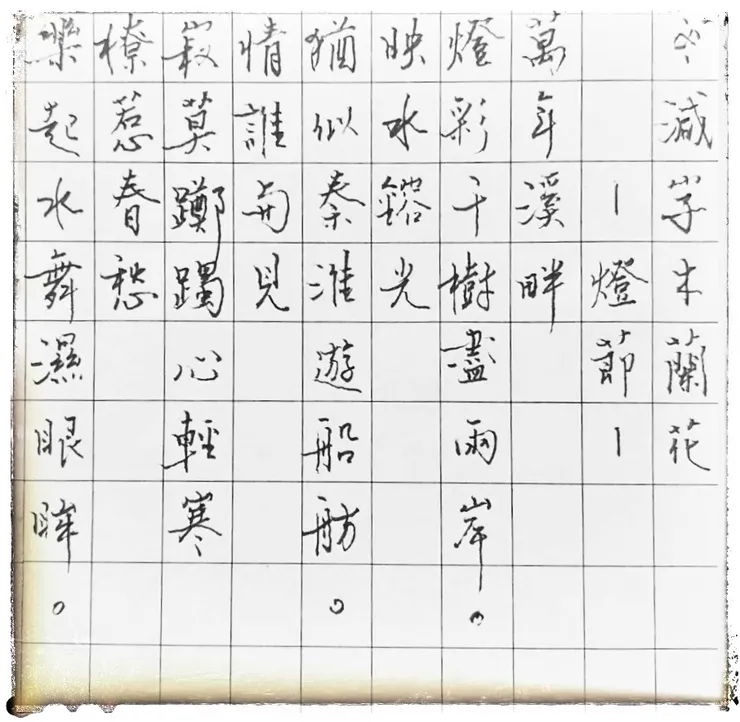 減字木蘭花
丨燈節丨
萬年溪畔
燈彩千樹盡兩岸。
映水鎔光
猶似秦淮遊船舫。
情誰見
莫躑躅心輕寒
撩惹春愁
樂起水舞濕眼眸。